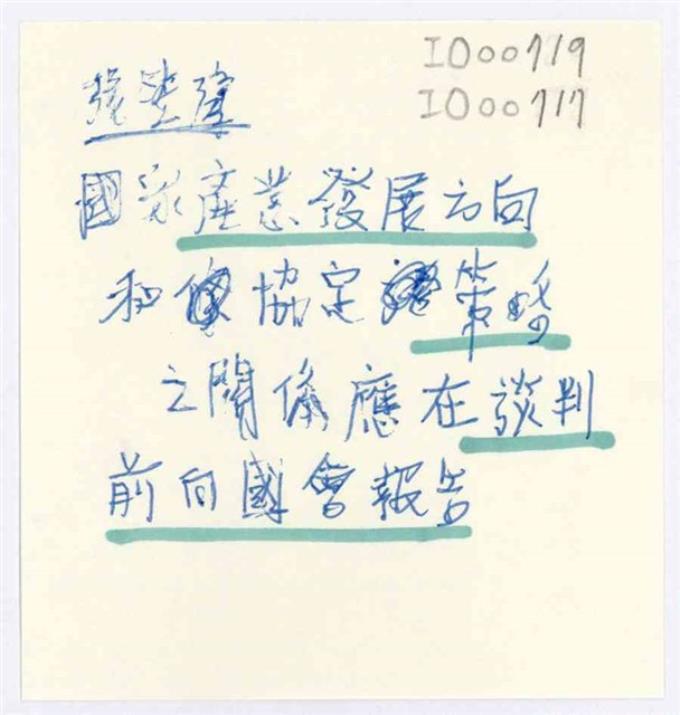 IO00719
IO00717
張
國家產業發展方向
和協定策略
之關係應在談判
前向國會報告